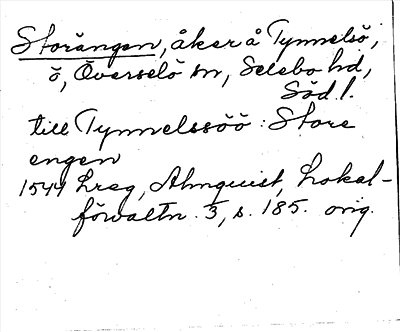 Storängen, åker å Tynnelsö,
ö, Överselö sn, Selebo hd,
Söd. l.
till Tynnelssöö : Store
engen
1544 Lreg, Almquist, Lokal-
förvaltn. 3, s. 185. orig.